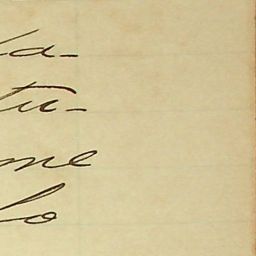 la-
tu-
me
lo